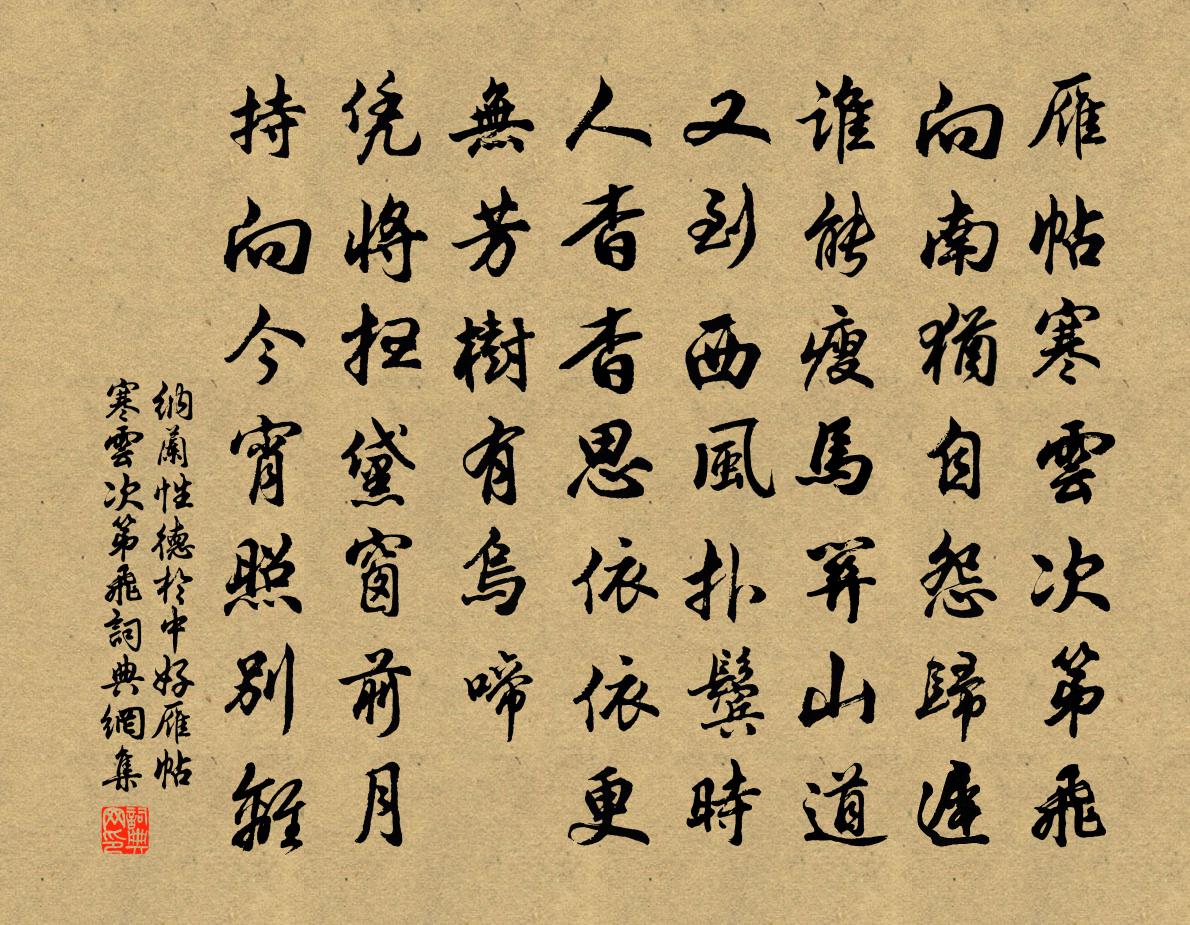 雁帖寒雲次第飛
向南猶自怨歸遲
誰能瘦馬關山道
又到西風扑鬢時
人杳杳思依依更
無芳樹有烏啼
凭將扫黛窗前月
持向今宵照別離
納蘭性德於中好雁帖
寒雲次第飛詞典網集
詞典
网印